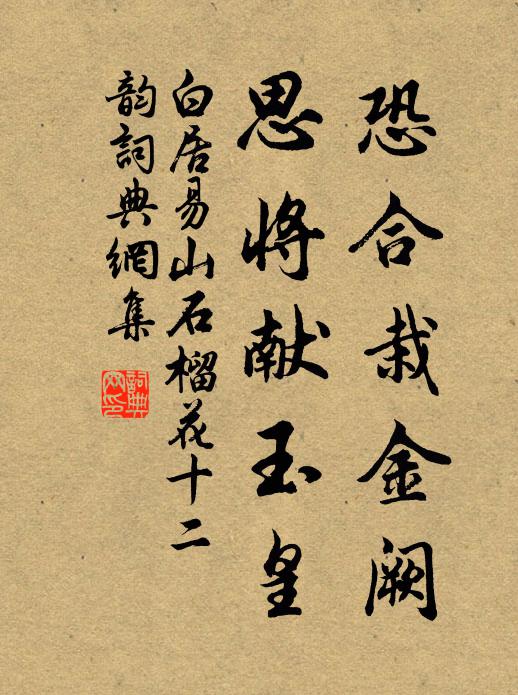 恐合栽金阙
思将献玉皇
白居易山石榴花十二
韵詞典網集
詞典網印